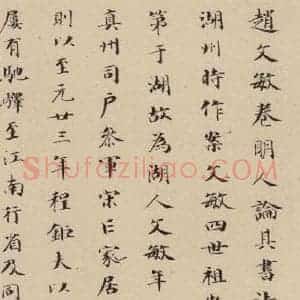 趙文敏卷明人論其書法
湖州時作案文敏四世祖
第于湖故為湖人文敏年
真州司戶參軍宋亡家居
則以至元廿三年程鉅夫以
屢有馳驛至江南行省及同
Shufaziliao.com